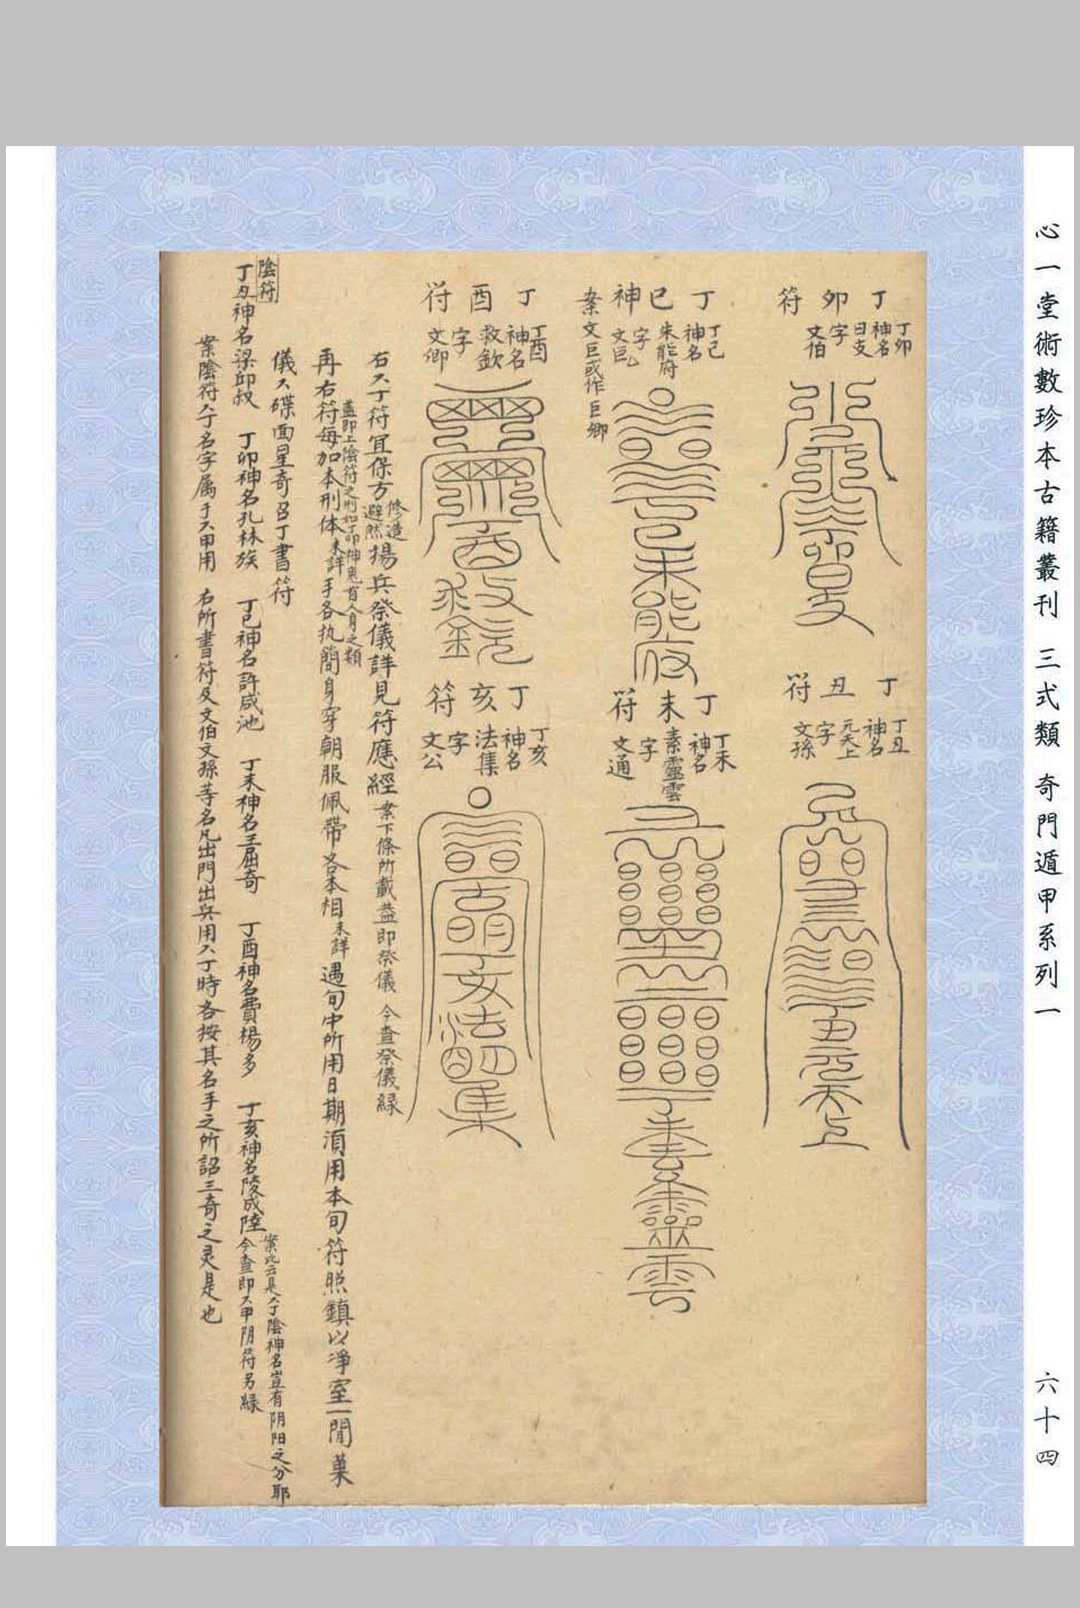 心一堂術數珍本古籍叢刊 三式類 奇門遁甲系列一
六十四
丁卯符
丁卯
神名
曰支
字
文伯
丁丑符
丁丑
神名
元天上
字
文孫
丁巳神
丁巳
神名
朱能府
字
文巨
案文巨或作巨卿
丁未符
丁未
神名
素靈雲
字
文通
丁酉符
丁酉
神名
救欽
字
文卿
丁亥符
丁亥
神名
法集
字
文公
右六丁符宜保方修造避煞揚兵祭儀詳見符應經案下條所載蓋即祭儀 今查祭儀緑
蓋即上陰符之刑如丁卯神兎首人身之類
再右符每加本刑体未詳手各执簡身穿朝服佩帶各本相未詳遇旬中所用日期須用本旬符照鎮以凈室一間菓
儀六碟面星奇召丁書符
陰符
丁丑神名梁邱叔 丁卯神名孔林族 丁巳神名許咸池 丁未神名王屈奇 丁酉神名費楊多 丁亥神名陵成陸今查即六甲阴符另緑
案此云是六丁陰神名豈有阴阳之分耶
案陰符六丁名字属于六甲用 右所書符及文伯文孫等名凡出門出兵用六丁時各按其名手之所詔三奇之灵是也